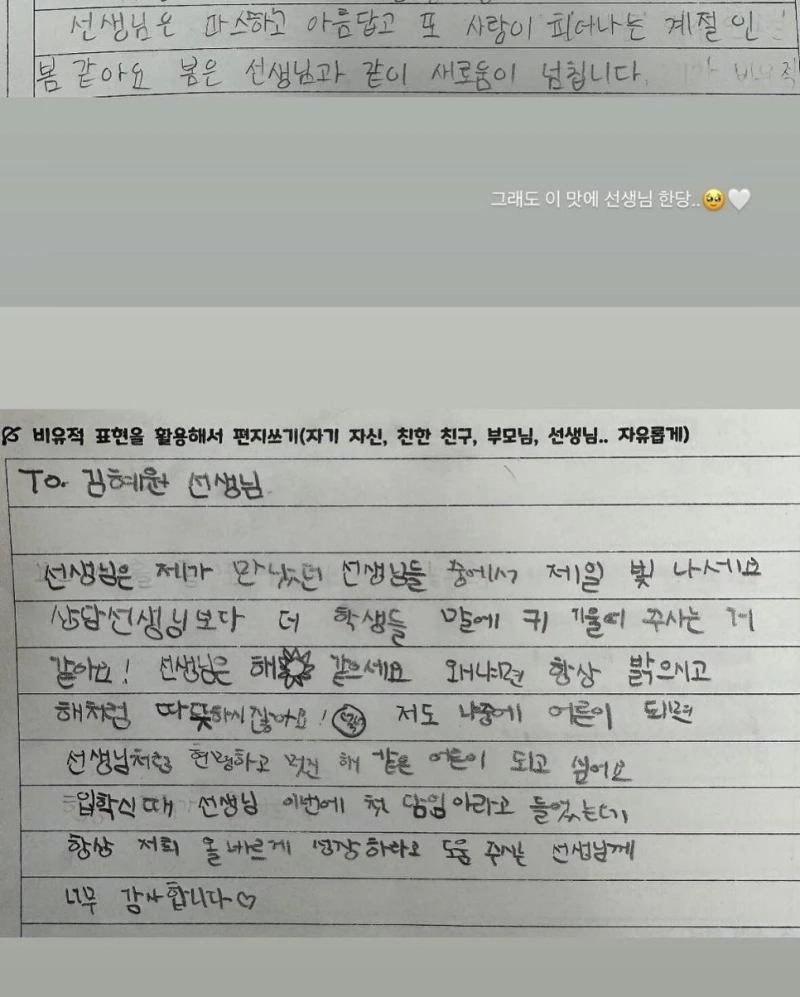 선생님은 따스하고 아름답고 또 사랑이 피어나는 계절 인
봄 같아요 봄은 선생님과 같이 새로움이 넘칩니다.
그래도 이 맛에 선생님 한당..🥹🤍
비유적 표현을 활용해서 편지쓰기(자기 자신, 친한 친구, 부모님, 선생님.. 자유롭게)
To. 김혜원 선생님
선생님은 제가 만났던 선생님들 중에서 제일 빛 나세요
상담선생님보다 더 학생들 말에 귀 기울여 주시는 거
같아요! 선생님은 해 같으세요 왜냐면 항상 밝으시고
해처럼 따뜻하시잖아요! 저도 나중에 어른이 되면
선생님처럼 현명하고 멋진 해 같은 어른이 되고 싶어요
입학식 때 선생님 이번에 첫 담임이라고 들었는데
항상 저희 올바르게 성장하라고 도움 주시는 선생님께
너무 감사합니다♡